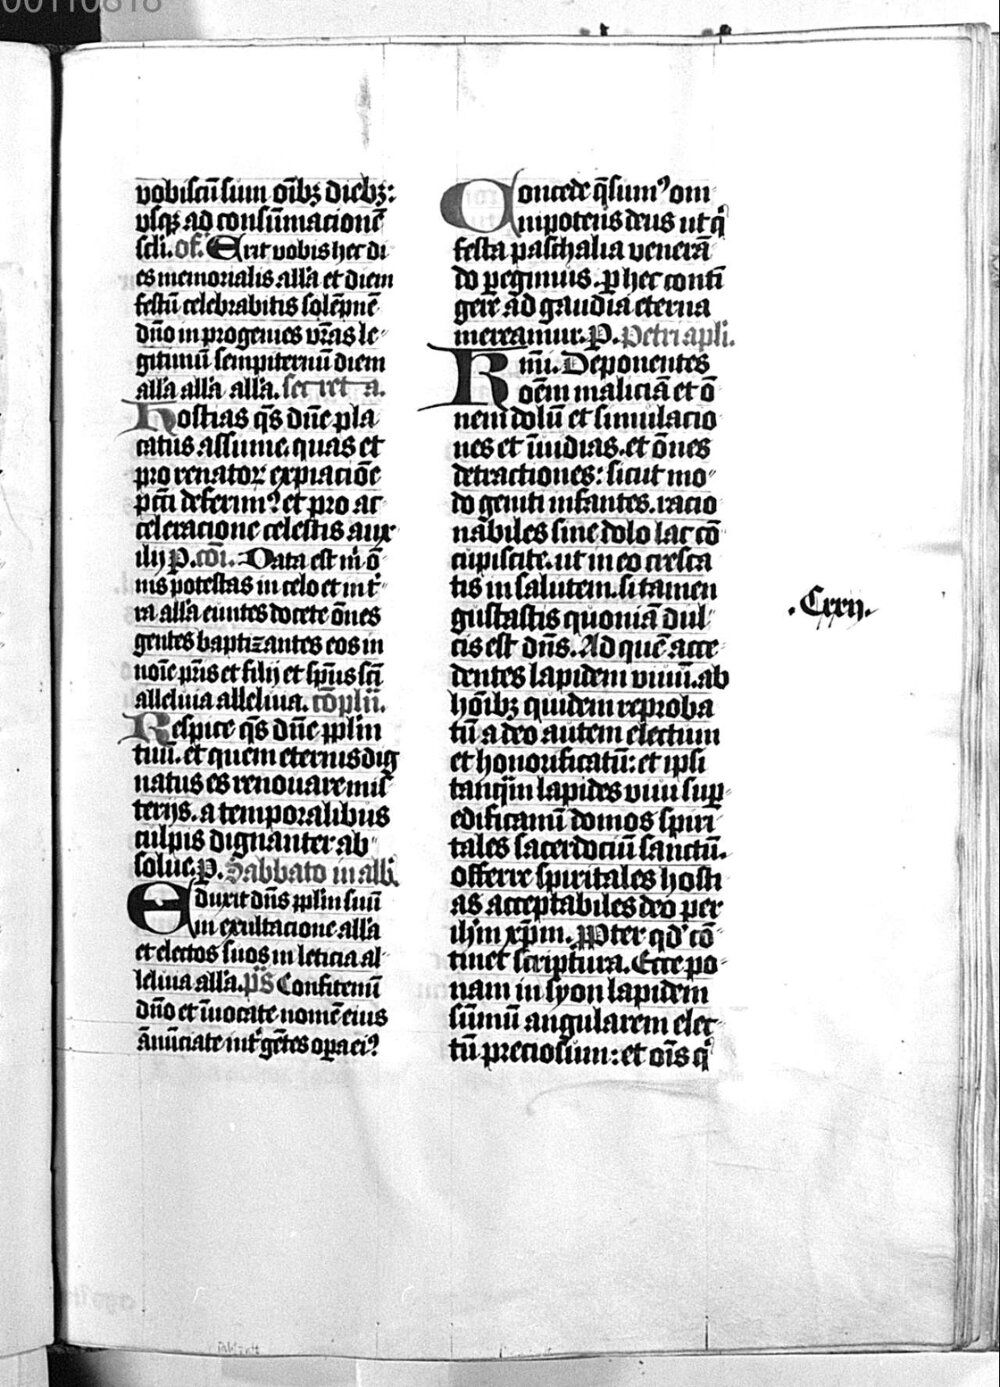 00110818
vobiscū sum oībꝫ diebꝫ:
vsqꝫ ad consūmacionē
scli. of. Erit vobis hec di
es memorialis all'a et diem
festū celebrabitis solēpnē
dn̄o in progenies vr̄as le-
gitimū sempiternū diem
all'a all'a all'a. secreta.
Hostias qs̄ dn̄e pla
catus assume. quas et
pro renatoꝝ expiaciōe
pctī deferimꝰ et pro ac
celeracione celestis aux
ilij p. cōi. Data est m̄ o
nis potestas in celo et in t̄
ra all'a euntes docete ōnes
gentes baptizantes eos in
noīe pr̄is et filij et sp̄us scī
alleluia alleluia. cōplīī.
Respice qs̄ dn̄e pplm̄
tuū. et quem eternis dig
natus es renouare mis
terijs. a temporalibus
culpis dignanter ab
solue. p. Sabbato in alb̄
Eduxit dn̄s pplm̄ suū
in exultacione all'a
et electos suos in leticia al-
leluia all'a. p̄s Confitemī
dn̄o et īuocate nomē eius
ānūciate int' gētes oꝑa eiꝰ
Concede qs̄umꝰ om
nipotens deus ut qͥ
festa paschalia venerā
do pegimus. ꝑ hec conti
gerē ad gaudia eterna
mereamur. P. Petri apli.
Kmī. Deponentes
oēm maliciā et ō
nem dolū et simulacio
nes et īuidias. et ōnes
detractiones: sicut mo-
do geniti infantes. racio
nabiles sine dolo lac cō
cupiscite. ut in eo cresca
tis in salutem. si tamen
gustastis quoniā dul-
cis est dn̄s. Ad quē acce-
dentes lapidem viuū. ab
hoībꝫ quidem reproba
tū a deo autem electum
et honorificatū: et ipsi
tanqm̄ lapides viui suꝑ-
edificamī domos spiri
tales sacerdociū sanctū.
offerre spiritales hosti
as acceptabiles deo per
ihm̄ xp̄m. Ppter qd' cō-
tinet scriptura. Ecce po-
nam in syon lapidem
sūmū angularem elec-
tū preciosum: et oīs qͥ
.Cxxij.